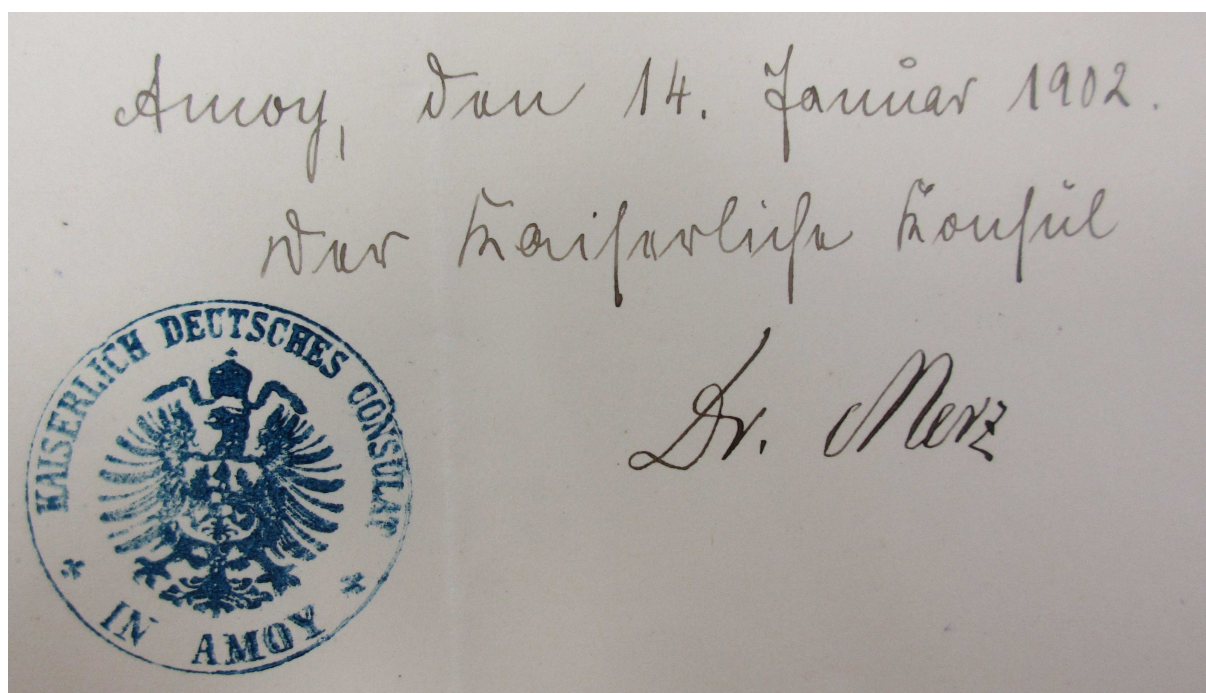 Amoy, den 14. Januar 1902.
Der Kaiserliche Konsul
Dr. Merz
KAISERLICH DEUTSCHES CONSULAT
* IN AMOY *